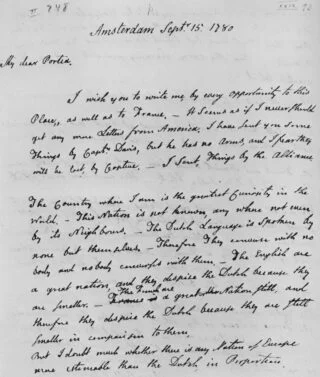 II 248
Amsterdam Septr. 15 1780
My dear Portia.
I wish you to write me by every opportunity to this
Place, as well as to France. — It seems as if I never should
get any more Letters from America. I have sent you some
Things by Captn. Davis, but he has no Arms, and I fear they
will be lost, by Capture. — I sent Things by the Alliance.
The Country where I am is the greatest Curiosity in the
World. — This Nation is not known any where, not even
by its Neighbours. — The Dutch Language is Spoken by
none but themselves. — Therefore They converse with no
body and nobody converses with them. — The English are
a great nation, and they despise the Dutch because they
are smaller. — The French are a greater Nation still, and
therefore they despise the Dutch because they are still
smaller in comparison to them.
But I doubt much whether there is any Nation of Europe
more estimable than the Dutch, in Proportion.